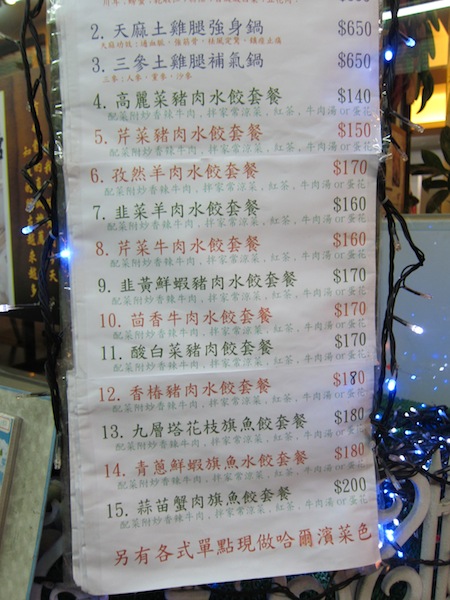 2. 天麻土雞腿強身鍋 $650
天麻功效：通血脈，強筋骨，祛風定驚，鎮痙止痛
3. 三參土雞腿補氣鍋 $650
三參：人參，黨參，沙參
4. 高麗菜豬肉水餃套餐 $140
配菜附炒香辣牛肉，拌家常涼菜，紅茶，牛肉湯or蛋花
5. 芹菜豬肉水餃套餐 $150
配菜附炒香辣牛肉，拌家常涼菜，紅茶，牛肉湯or蛋花
6. 孜然羊肉水餃套餐 $170
配菜附炒香辣牛肉，拌家常涼菜，紅茶，牛肉湯or蛋花
7. 韭菜羊肉水餃套餐 $160
配菜附炒香辣牛肉，拌家常涼菜，紅茶，牛肉湯or蛋花
8. 芹菜牛肉水餃套餐 $160
配菜附炒香辣牛肉，拌家常涼菜，紅茶，牛肉湯or蛋花
9. 韭黃鮮蝦豬肉水餃套餐 $170
配菜附炒香辣牛肉，拌家常涼菜，紅茶，牛肉湯or蛋花
10. 茴香牛肉水餃套餐 $170
配菜附炒香辣牛肉，拌家常涼菜，紅茶，牛肉湯or蛋花
11. 酸白菜豬肉餃套餐 $170
配菜附炒香辣牛肉，拌家常涼菜，紅茶，牛肉湯or蛋花
12. 香椿豬肉水餃套餐 $180
配菜附炒香辣牛肉，拌家常涼菜，紅茶，牛肉湯or蛋花
13. 九層塔花枝旗魚餃套餐 $180
配菜附炒香辣牛肉，拌家常涼菜，紅茶，牛肉湯or蛋花
14. 青蔥鮮蝦旗魚水餃套餐 $180
配菜附炒香辣牛肉，拌家常涼菜，紅茶，牛肉湯or蛋花
15. 蒜苗蟹肉旗魚餃套餐 $200
配菜附炒香辣牛肉，拌家常涼菜，紅茶，牛肉湯or蛋花
另有各式單點現做哈爾濱菜色